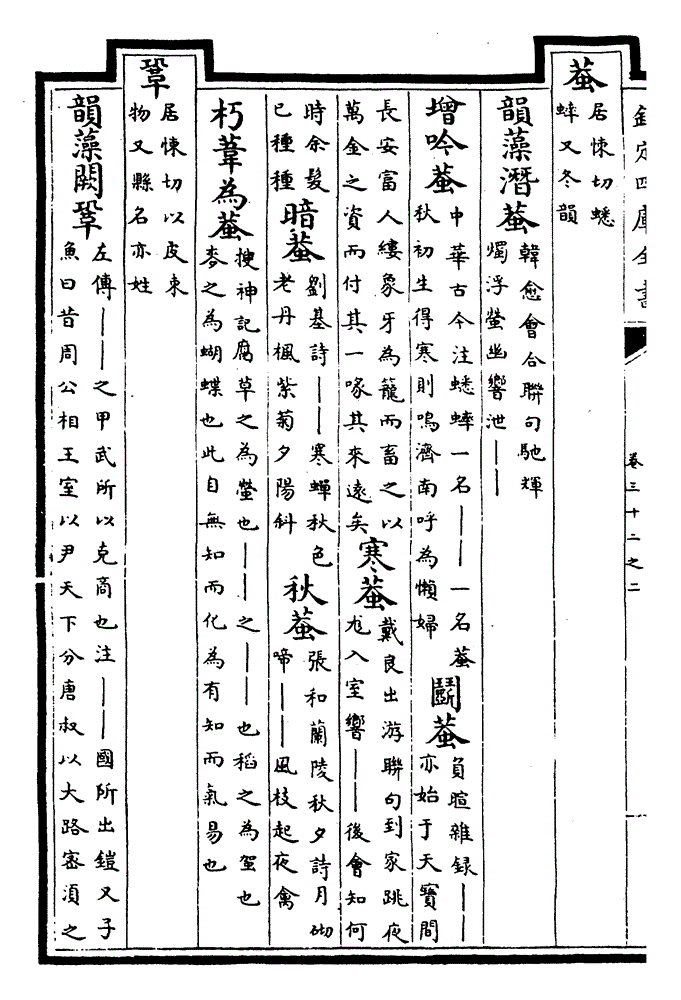 欽定四庫全書
卷三十二之二
蛬
居悚切蟋
蟀又冬韻
韻藻潛蛬
韓愈會合聯句馳輝
燭浮螢幽響泄——
增吟蛬
中華古今注蟋蟀一名——一名蛬
秋初生得寒則鳴濟南呼為懶婦
鬭蛬
負暄雜録——
亦始于天寶間
長安富人縷象牙為籠而畜之以
萬金之資而付其一喙其來遠矣
寒蛬
戴良出游聯句到家跳夜
尨入室響——後會知何
時余髮
已種種
暗蛬
劉基詩——寒蟬秋色
老丹楓紫菊夕陽斜
秋蛬
張和蘭陵秋夕詩月砌
啼——風枝起夜禽
朽葦為蛬
搜神記腐草之為螢也——之——也稻之為也
麥之為蝴蝶也此自無知而化為有知而氣易也
鞏
居悚切以皮束
物又縣名亦姓
韻藻闕鞏
左傳——之甲武所以克商也注——國所出鎧又子
魚曰昔周公相王室以尹天下分唐叔以大路密須之